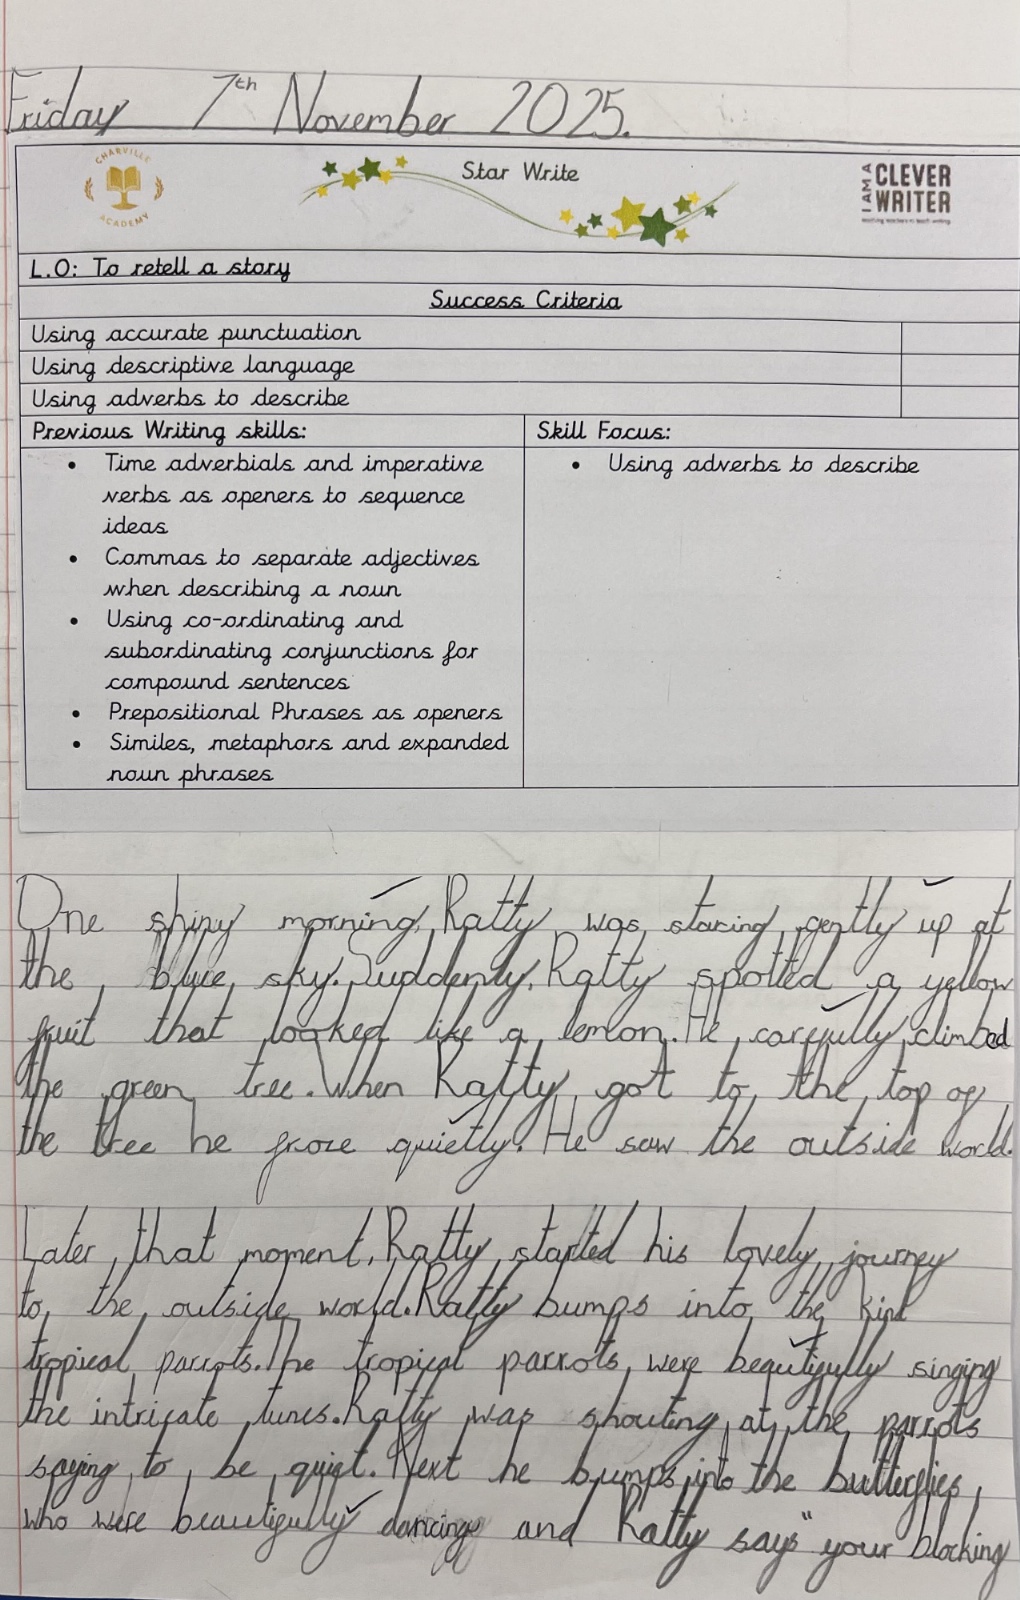 Friday 7th November 2025.
CHARVILLE
ACADEMY
Star Write
I AM A
CLEVER
WRITER
L.O: To retell a story
Success Criteria
Using accurate punctuation
Using descriptive language
Using adverbs to describe
Previous Writing skills:
• Time adverbials and imperative
verbs as openers to sequence
ideas
• Commas to separate adjectives
when describing a noun
• Using co-ordinating and
subordinating conjunctions for
compound sentences
• Prepositional Phrases as openers
• Similes, metaphors and expanded
noun phrases
Skill Focus:
• Using adverbs to describe
One shiny morning, Ratty was staring gently up at
the blue sky. Suddenly, Ratty spotted a yellow
fruit that looked like a lemon. He carefully climbed
the green tree. When Ratty got to the top of
the tree he froze quietly. He saw the outside world.
Later that moment, Ratty started his lovely journey
to the outside world. Ratty bumps into the kind
tropical parrots. The tropical parrots were beautifully singing
the intricate tunes. Ratty was shouting at the parrots
saying to be quiet. Next he bumps into the butterflies,
who were beautifully dancing and Ratty says "your blocking